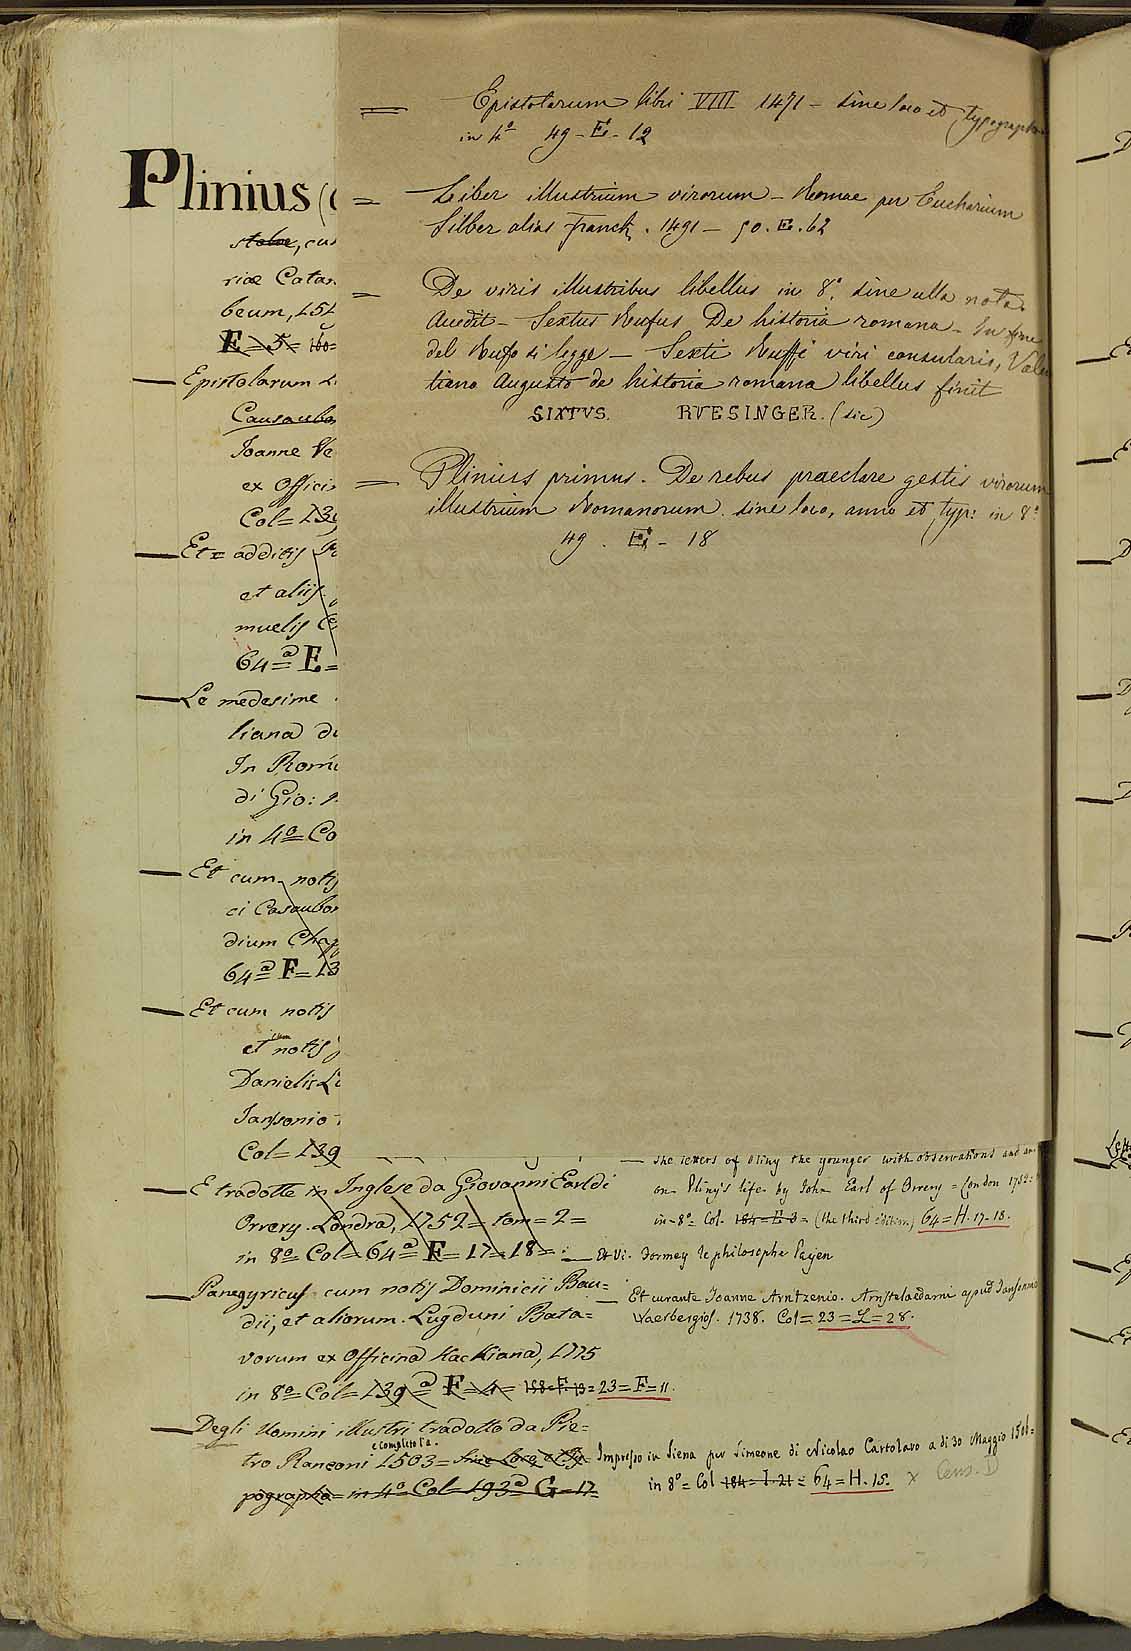 = Epistolarum libri VIII 1471 - sine loco et typographo
in 4º 49 - E - 12
= Liber illustrium virorum - Romae per Eucharium
Silber alias franck . 1491 - 50 . E . 62
= De viris illustribus libellus in 8º. sine ulla nota.
Accedit - Sextus Rufus De historia romana - In fine
del Rufo si legge - Sexti Ruffi viri consularis, Valen
tiano Augusto de historia romana libellus finit
SIXTVS. RVESINGER. (sic)
= Plinius primus. De rebus praeclare gestis virorum
illustrium Romanorum. sine loco, anno et typ: in 8º
49 . E - 18
Plinius (C
riæ Catan
beum, 152
E = 5 = 160 =
— Epistolarum Li
Causaubo
Joanne Ve
ex Offici
Col = 139
— Et = additis
et aliis.
muelis C
64 = a E =
— Le medesime
liana di
In Roma
di Gio:
in 4º = Co
— Et cum notis
ci Casaubon
dium Chap
64 = a F = 13
— Et cum notis
et cum notis
Danielis
Janssonio
Col = 139
— E tradotte in Inglese da Giovanni Earl di
Orrery. Londra, 1752 = tom = 2 =
in 8º = Col = 64 = a F = 17 = 18 =
— The letters of Pliny the younger with observations and an
on Pliny's life by John Earl of Orrery = London 1752 =
in = 8º = Col. 184 = E 3 = (the third edition) 64 = H. 17-18.
— Et Vi. Formey le philosophe Payen
— Panegyricus cum notis Dominicii Bau=
dii, et aliorum. Lugduni Bata=
vorum ex Officina Hackiana, 1775
in 8º = Col = 139 = a F = 4 = 158 = F. 19 = 23 = F = 11.
— Et curante Joanne Arntzenio. Amstelædami apud Janssonio
Waesbergios. 1738. Col = 23 = L = 28.
— Degli Uomini illustri tradotto da Pie=
e completo l'a.
tro Ranconi 1503 = sine Loco, et Ty=
pographo = in 4º = Col = 193 a G = 17 =
Impresso in Siena per Simeone di Nicolao Cartolaro a di 30 Maggio 1506 =
in 8º = Col 184 = I. 21 = 64 = H. 15. x Cens. D